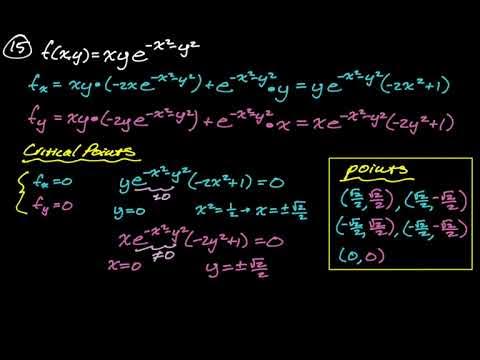 15) f(x,y) = xye^{-x²-y²}
f_x = xy·(-2xe^{-x²-y²}) + e^{-x²-y²}·y = ye^{-x²-y²}(-2x²+1)
f_y = xy·(-2ye^{-x²-y²}) + e^{-x²-y²}·x = xe^{-x²-y²}(-2y²+1)
Critical Points
{ f_x = 0
f_y = 0
ye^{-x²-y²}(-2x²+1) = 0
≠0
y=0 x² = ½ → x = ±√2/2
xe^{-x²-y²}(-2y²+1) = 0
≠0
x=0 y = ±√2/2
points
(√2/2, √2/2), (√2/2, -√2/2)
(-√2/2, √2/2), (-√2/2, -√2/2)
(0,0)